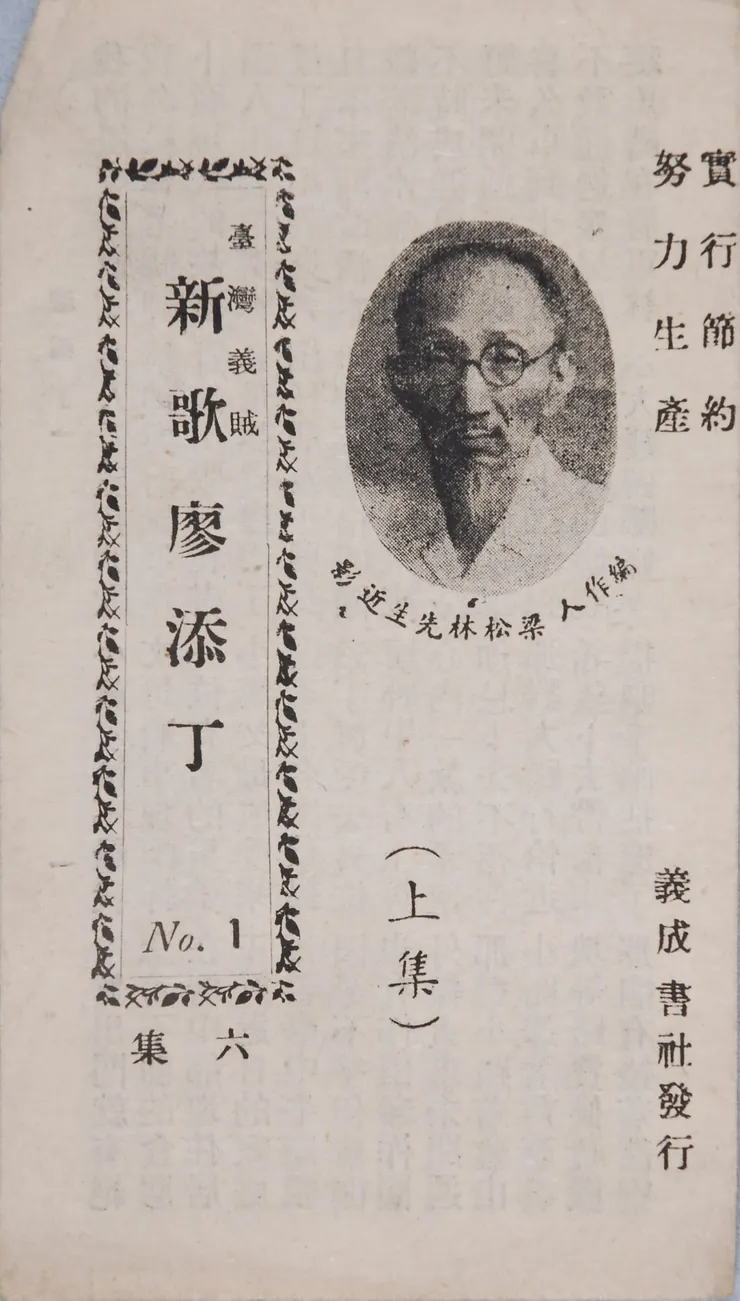 實行節約
努力生產
義成書社發行
編作人梁松林先生近影
（上集）
臺灣義賊
新歌廖添丁
No. 1
六集